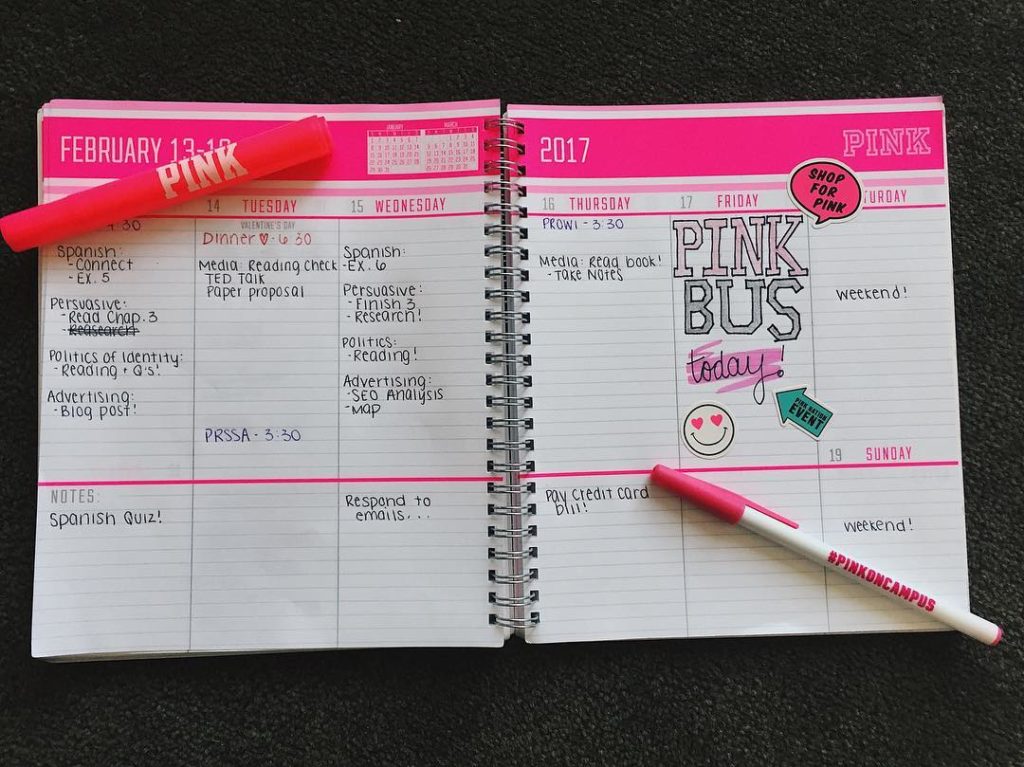 FEBRUARY 13-1
JANUARY
MARCH
2017
PINK
PINK
SHOP
FOR
PINK
14 TUESDAY
15 WEDNESDAY
16 THURSDAY
17 FRIDAY
URDAY
:30
Spanish:
- Connect
- EX. 5
Persuasive:
- Read Chap. 3
Politics of Identity:
- Reading + Q's!
Advertising:
- Blog post!
VALENTINE'S DAY
Dinner ♡ - 6:30
Media: Reading Check
TED Talk
Paper proposal
PRSSA - 3:30
Spanish:
- EX. 6
Persuasive:
- Finish 3
- Research!
Politics:
- Reading!
Advertising:
- SEO Analysis
- Map
PROWI - 3:30
Media: Read book!
- Take Notes
PINK
BUS
today!
PINK NATION
EVENT
Weekend!
19 SUNDAY
Weekend!
NOTES:
Spanish Quiz!
Respond to
emails...
Pay Credit Card
bill!
#PINKONCAMPUS